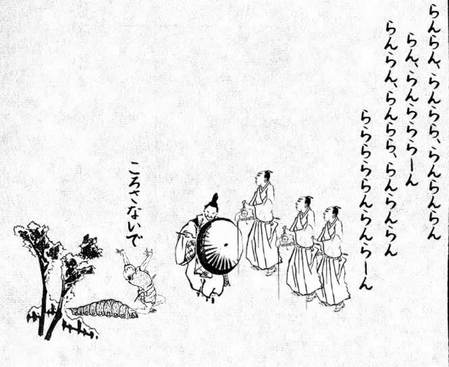 らんらん、らんらら、らんらんらん
らん、らんらららーん
らんらん、らんらら、らんらんらん
らららららんらんらーん
ころさないで